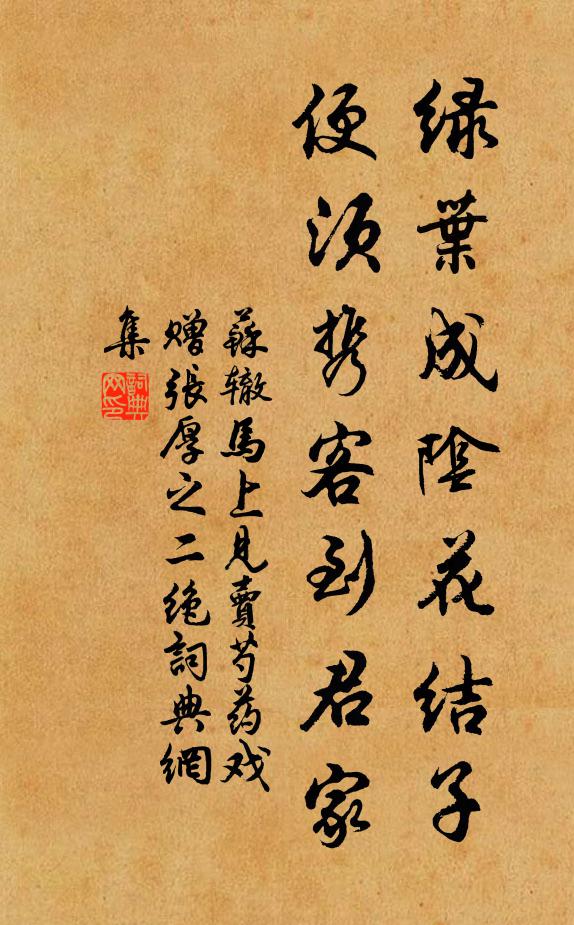 绿葉成陰花结子
便须携客到君家
蘇辙馬上見賣芍药戏
赠張厚之二绝詞典網
集
詞典网印